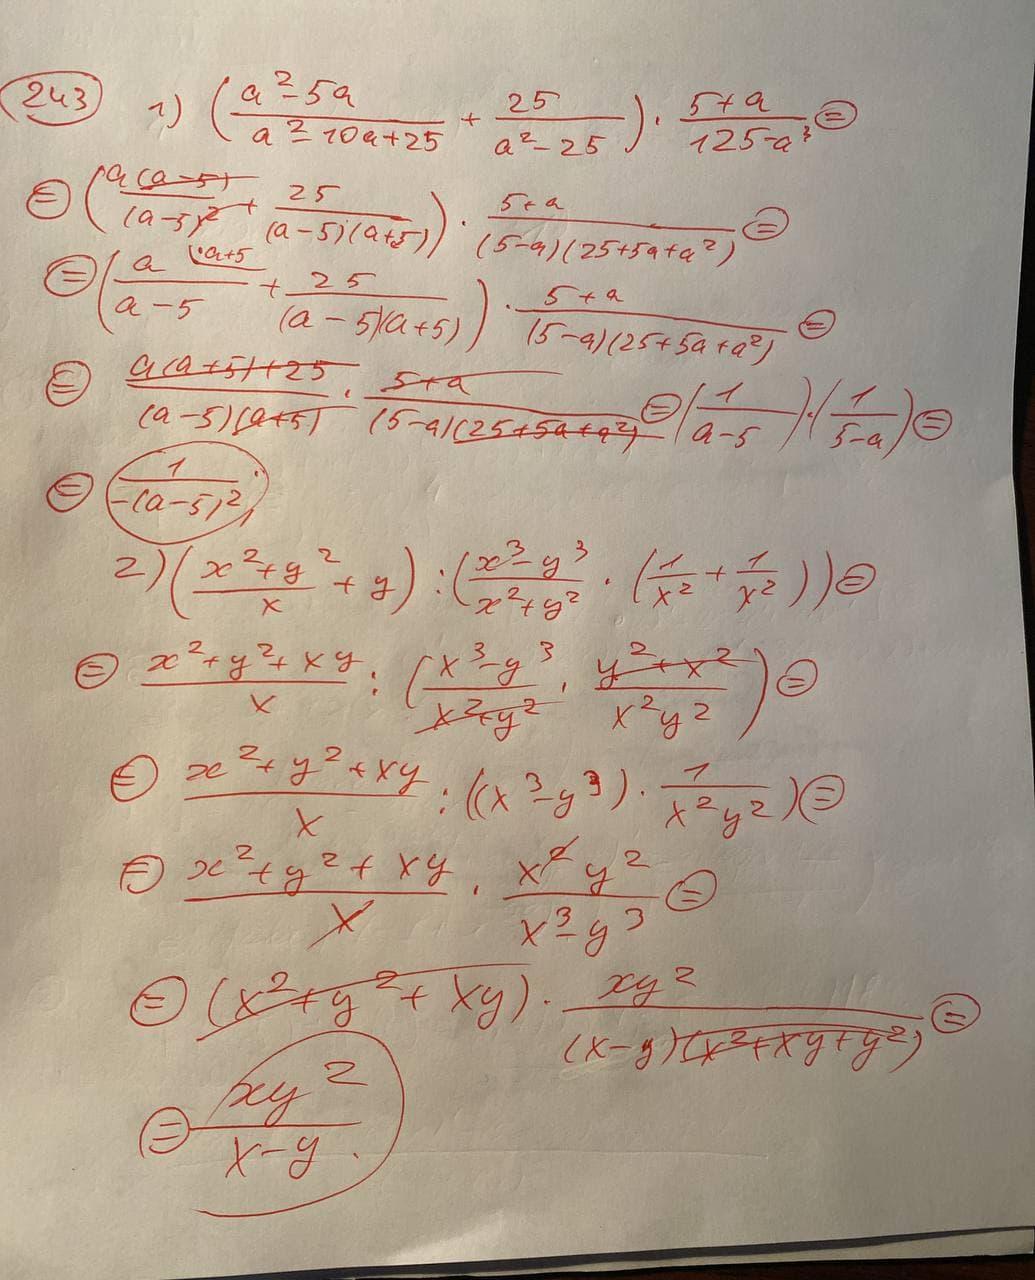 243 1) ((a²-5a)/(a²-10a+25) + 25/(a²-25)) · (5+a)/(125-a³) =
= (a(a-5)/(a-5)² + 25/((a-5)(a+5))) · (5+a)/((5-a)(25+5a+a²)) =
= (a ·a+5/(a-5) + 25/((a-5)(a+5))) · (5+a)/((5-a)(25+5a+a²)) =
= (a(a+5)+25)/((a-5)(a+5)) · (5+a)/((5-a)(25+5a+a²)) = (1/(a-5)) · (1/(5-a)) =
= 1/(-(a-5)²);
2) ((x²+y²)/x + y) : ((x³-y³)/(x²+y²) · (1/x² + 1/x²)) =
= (x²+y²+xy)/x : ((x³-y³)/(x²+y²) · (y²+x²)/(x²y²)) =
= (x²+y²+xy)/x : ((x³-y³) · 1/(x²y²)) =
= (x²+y²+xy)/x · (x²y²)/(x³-y³) =
= (x²+y²+xy) · xy²/((x-y)(x²+xy+y²)) =
= xy²/(x-y).